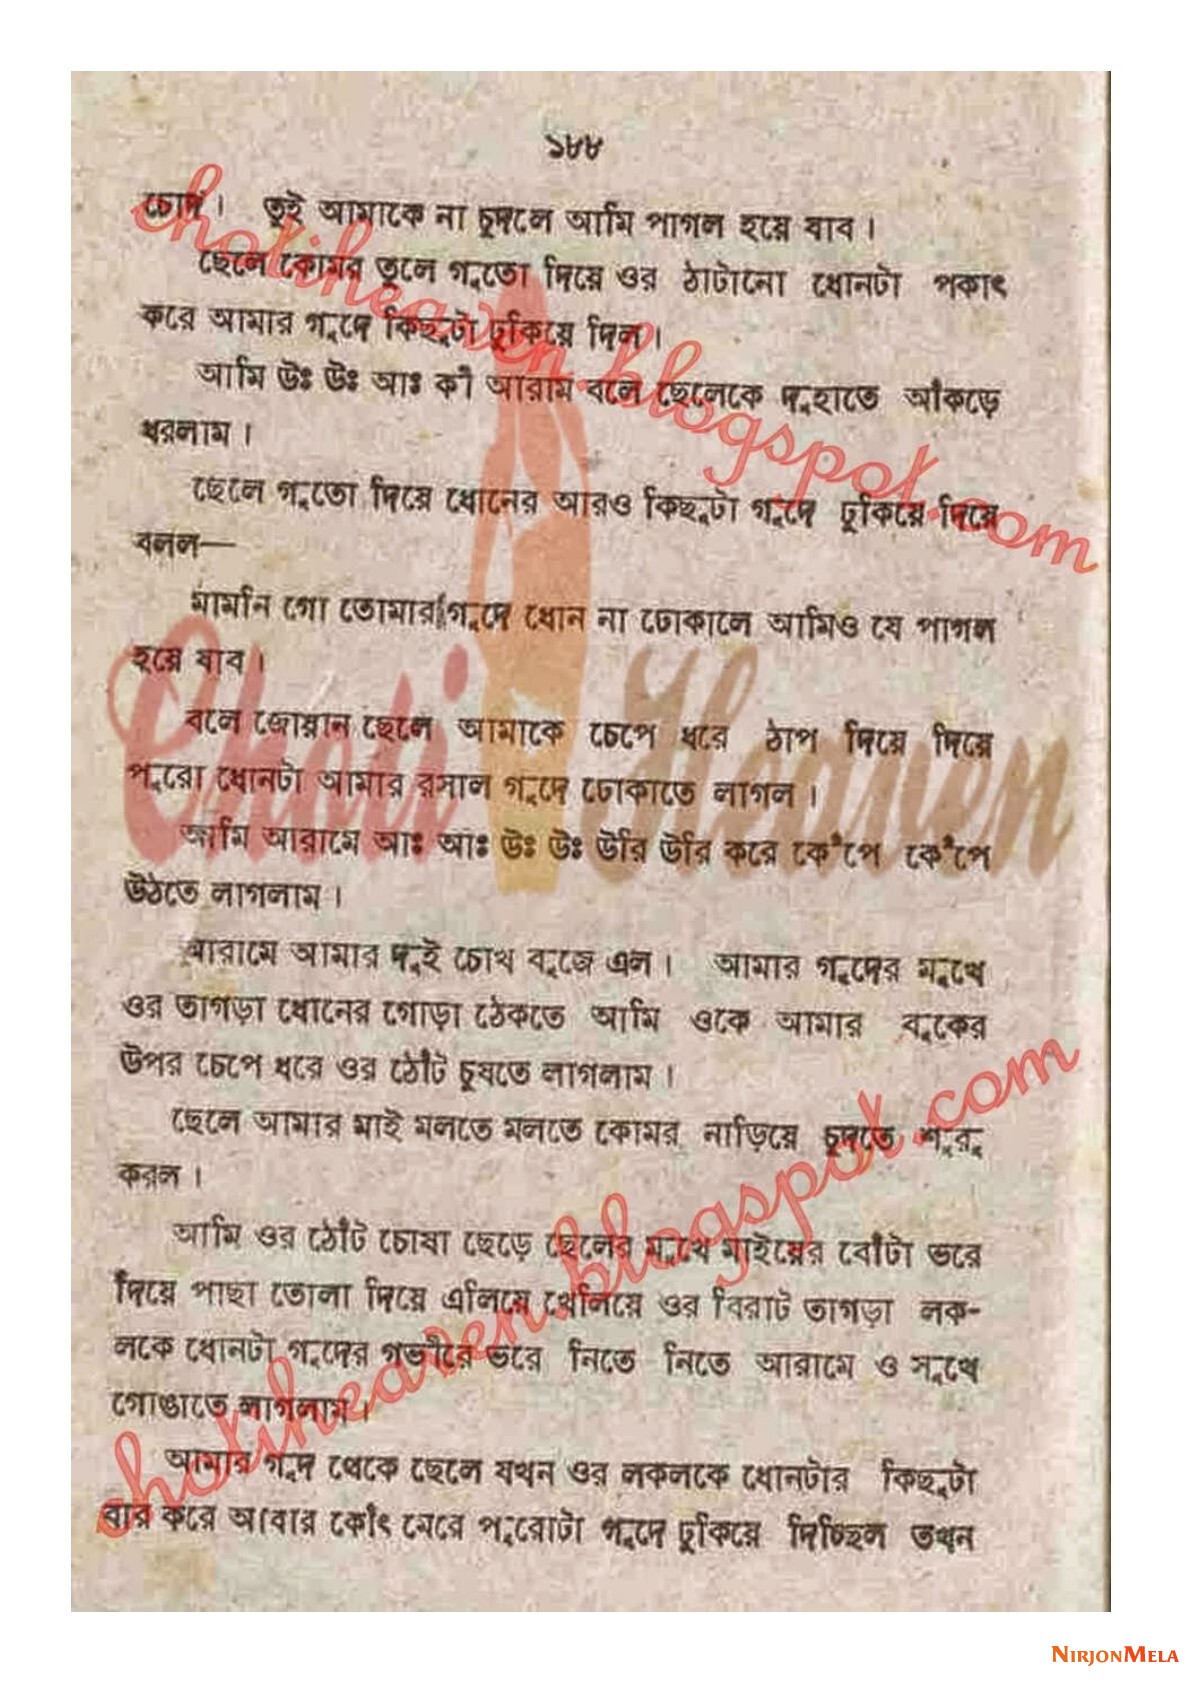 ১৮৮
চোদ। তুই আমাকে না চুদলে আমি পাগল হয়ে যাব।
ছেলে কোমর তুলে গুতো দিয়ে ওর ঠাটানো ধোনটা পকাৎ
করে আমার গুদে কিছুটা ঢুকিয়ে দিল।
আমি উঃ উঃ আঃ কী আরাম বলে ছেলেকে দুহাতে আঁকড়ে
ধরলাম।
ছেলে গুতো দিয়ে ধোনের আরও কিছুটা গুদে ঢুকিয়ে দিয়ে
বলল—
মামনি গো তোমার গুদে ধোন না ঢোকালে আমিও যে পাগল
হয়ে যাব।
বলে জোয়ান ছেলে আমাকে চেপে ধরে ঠাপ দিয়ে দিয়ে
পুরো ধোনটা আমার রসাল গুদে ঢোকাতে লাগল।
আমি আরামে আঃ আঃ উঃ উঃ উরি উরি করে কেঁপে কেঁপে
উঠতে লাগলাম।
আরামে আমার দুই চোখ বুজে এল। আমার গুদের মুখে
ওর তাগড়া ধোনের গোড়া ঠেকতে আমি ওকে আমার বুকের
উপর চেপে ধরে ওর ঠোঁট চুষতে লাগলাম।
ছেলে আমার মাই মলতে মলতে কোমর নাড়িয়ে চুদতে শুরু
করল।
আমি ওর ঠোঁট চোষা ছেড়ে ছেলের মুখে মাইয়ের বোঁটা ভরে
দিয়ে পাছা তোলা দিয়ে এলিয়ে খেলিয়ে ওর বিরাট তাগড়া লক-
লকে ধোনটা গুদের গভীরে ভরে নিতে নিতে আরামে ও সুখে
গোঙাতে লাগলাম।
আমার গুদ থেকে ছেলে যখন ওর লকলকে ধোনটার কিছুটা
বার করে আবার কোঁৎ মেরে পুরোটা গুদে ঢুকিয়ে দিচ্ছিল তখন
chotiheaven.blogspot.com
Choti Heaven
chotiheaven.blogspot.com
NIRJONMELA